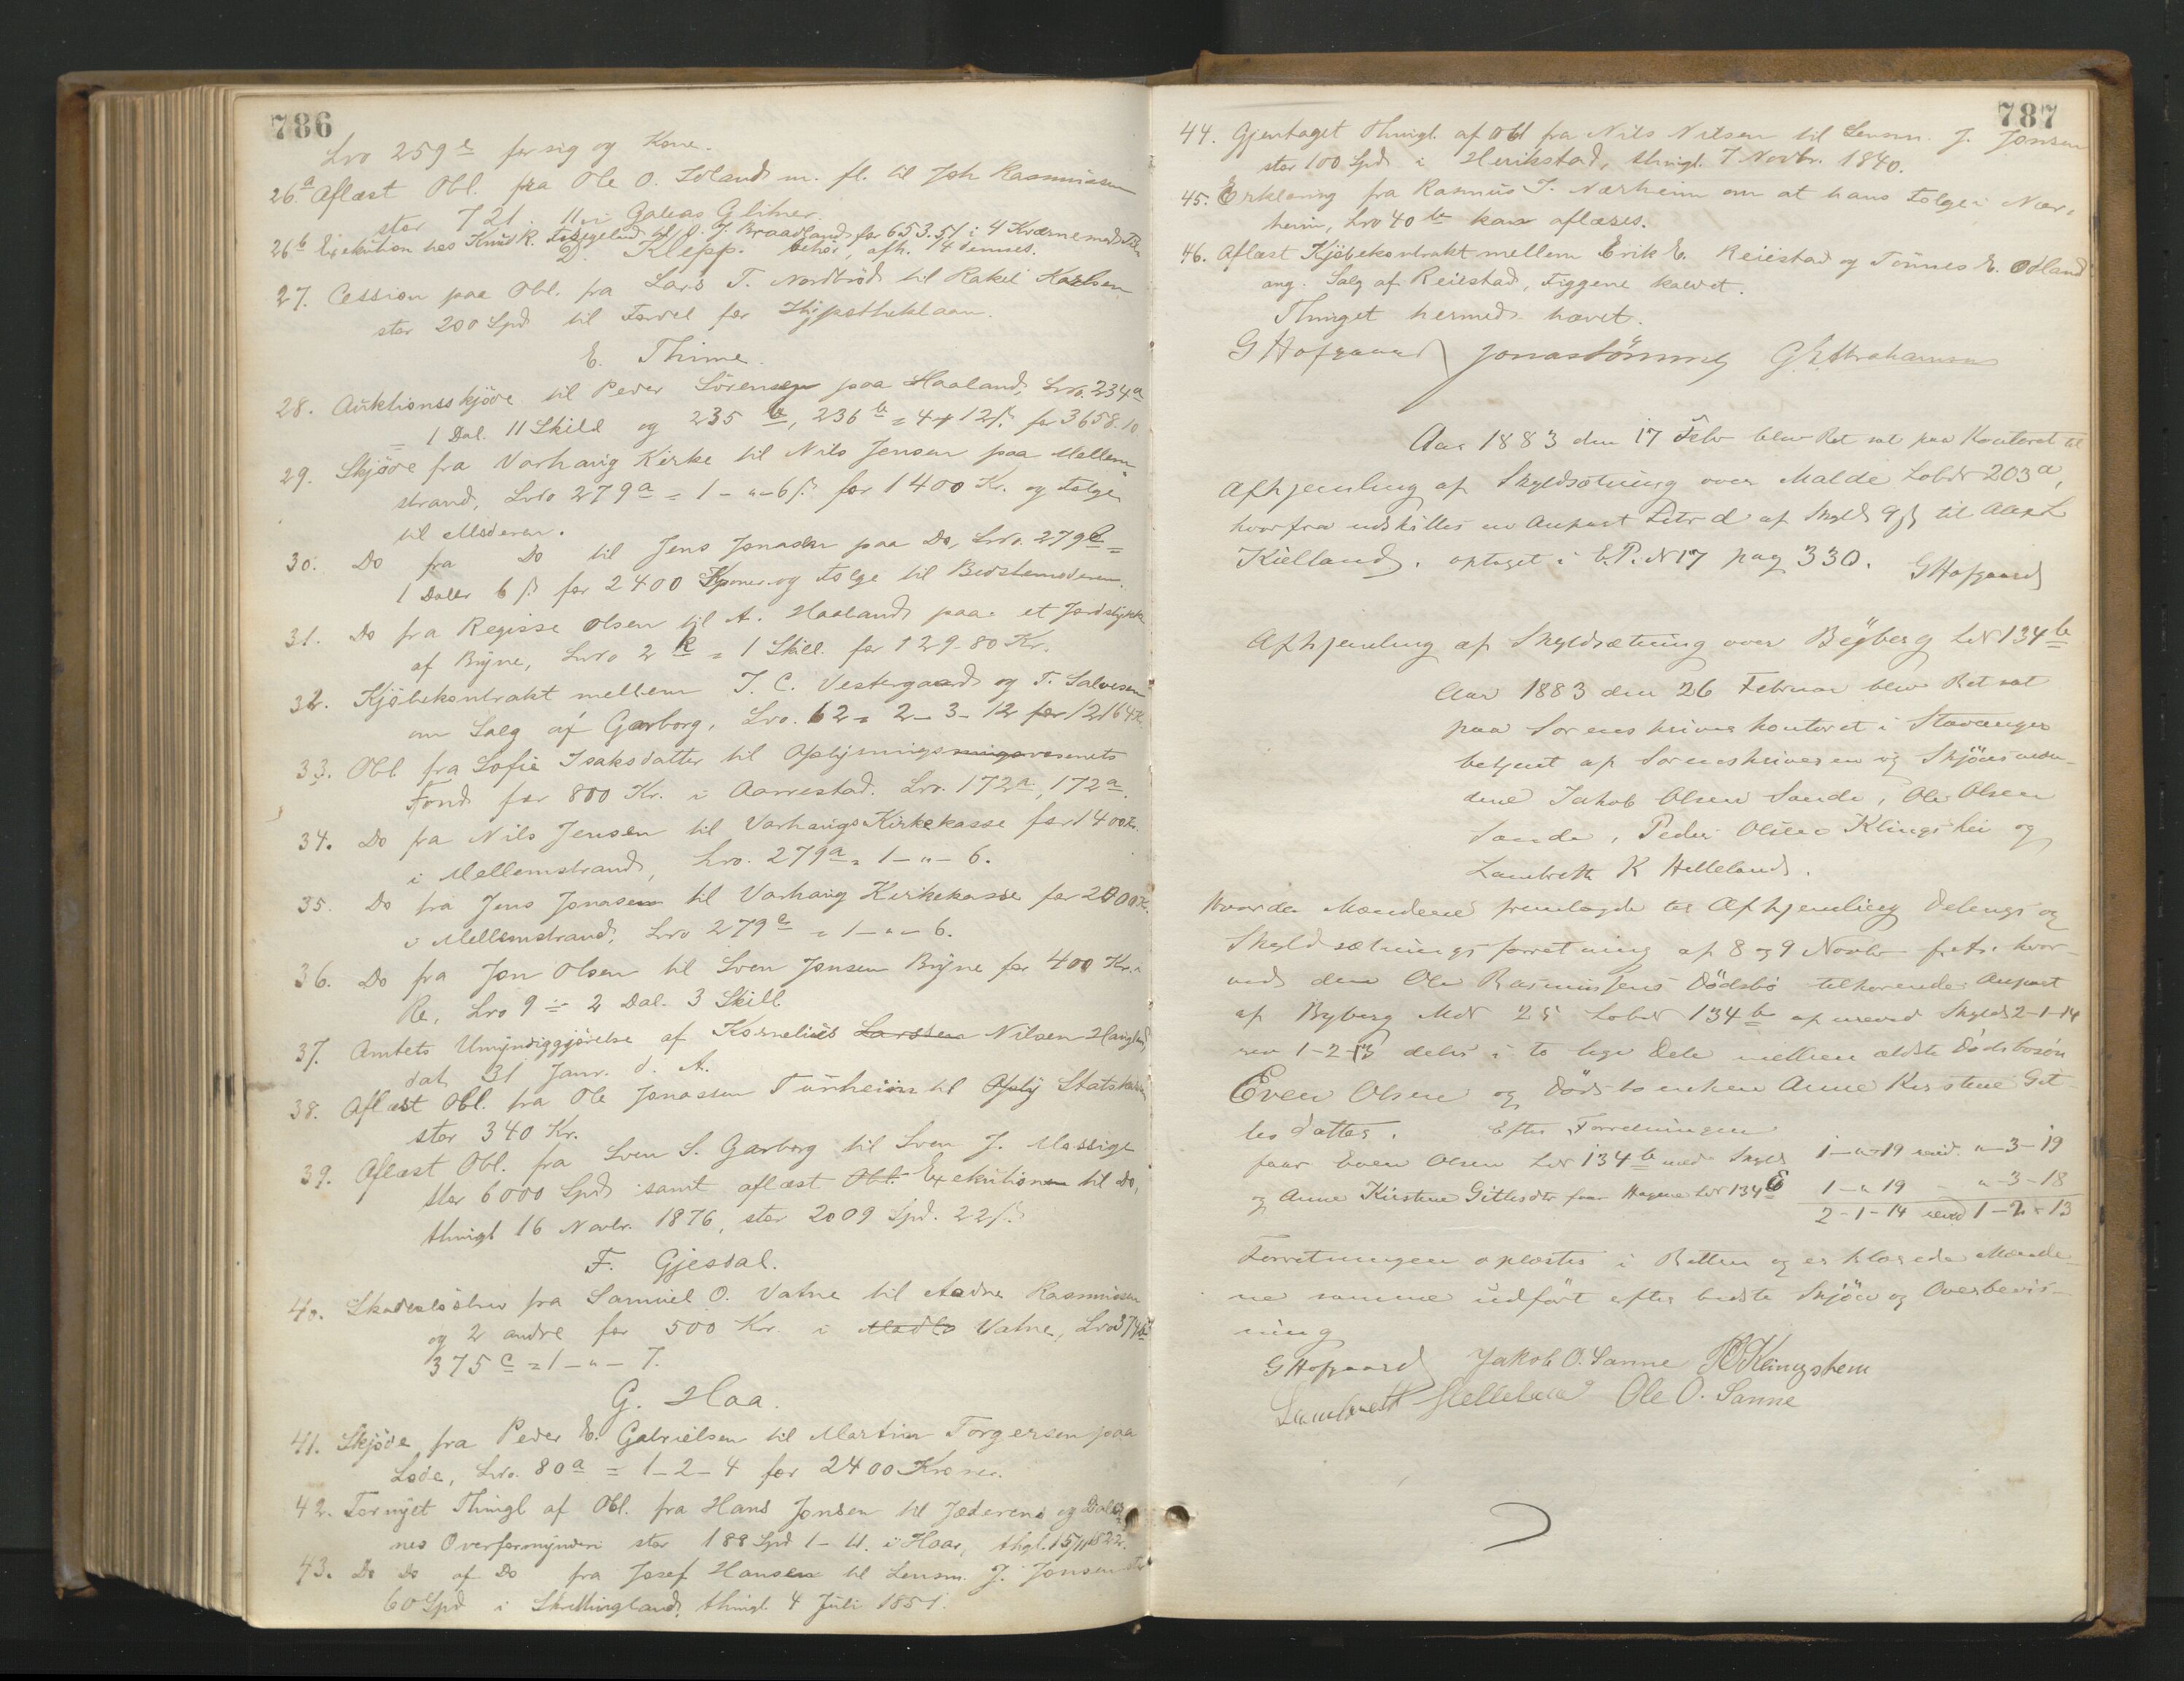 786
Lno 259e for sig og Kone.
26.a Aflæst Obl. fra Ole O. Soland m. fl. til Joh Rasmussen
stor 721. 11 i Galeas Glitner.
26b Exekution hos Knud R. Fuglgelund til O. J. Braadland for 653.51 i 4 Kværne med Tilbehör, afh. 14 dennes.
D. Klepp.
27. Cession paa Obl. fra Lars T. Nordbrød til Rakel Karlsen
stor 200 Spd til Fordel for Hypotheklaan.
E. Thime.
28. Auktionsskjöde til Peder Sörensen paa Haaland, Lno. 234a
= 1 Dal. 11 Skill og 235 b, 236 b = 4 + 12 ß. for 3658.10
29. Skjöde fra Varhaug Kirke til Nils Jensen paa Mellem
strand, LNo 279a = 1 - " - 6 ß. for 1400 Kr. og Folge
til Moderen.
30. Do fra Do til Jens Jonasen paa Do, LNo. 279e =
1 Daler 6 ß for 2400 Kroner og Folge til Bedstemoderen.
31. Do fra Regisse Olsen til A. Haaland paa et Jordstykke
af Bryne, LNo 2 k = 1 Skill. for 129-80 Kr.
32. Kjöbekontrakt mellem T. C. Vestergaard og T. Salvesen
om Salg af Garborg, Lno. 62 = 2 - 3 - 12 for 12164 K.
33. Obl fra Sofie Isaksdatter til Oplysningsvæsenets
Fond for 800 Kr. i Aarrestad. Lno. 172a, 172a.
34. Do fra Nils Jensen til Varhaugs Kirkekasse for 1400 Kr.
i Mellemstrand, Lno. 279a = 1 - " - 6.
35. Do fra Jens Jonasen til Varhaug Kirkekasse for 2000 K.
i Mellemstrand, Lno 279e = 1 - " - 6.
36. Do fra Jon Olsen til Sven Jonsen Bryne for 400 Kr. i
Re, Lno 9 = 2 Dal. 3 Skill.
37. Amtets Umyndiggjörelse af Kornelius Larssen Nilsen Haugland,
dat. 31 Janr. d. A.
38. Aflæst Obl. fra Ole Jonassen Tunheim til Oply Statskassen
stor 340 Kr.
39. Aflæst Obl. fra Sven S. Garborg til Sven J. Mossige
stor 6000 Spd samt aflæst Obl. Exekution til Do,
thingl 16 Novbr. 1876, stor 2009 Spd. 22 ß.
F. Gjesdal.
40. Skadeslösbrev fra Samuel O. Vatne til Aadne Rasmussen
og 2 andre for 500 Kr. i Madla Vatne, Lno 374b
375c = 1 - " - 7.
G. Haa.
41. Skjöde fra Peder E. Gabrielsen til Martin Torgersen paa
Lode, Lno. 80a = 1 - 2 - 4 for 2400 Kroner.
42. Fornyet Thingl af Obl. fra Hans Jonsen til Jæderens og Dale
nes Overformynderi stor 188 Spd 1 - 4. i Haar, thgl. 15/11 1822.
43. Do Do af Do fra Josef Hansen til Lensm. J. Jonsen stor
60 Spd i Skrettingland, thingl. 4 Juli 1851.
787
44. Gjentaget Thingl. af Obl fra Nils Nilsen til Lensm. J. Jonsen
stor 100 Spd. i Herikstad, thingl. 7 Novbr. 1840.
45. Erklæring fra Rasmus T. Nærheim om at hans Folge i Nær-
heim, Lno 40 b kan aflæses.
46. Aflæst Kjöbekontrakt mellem Erik E. Reiestad og Tönnes E. Odland
ang. Salg af Reiestad, Figgene kaldet.
Thinget hermed hævet.
G Hofgaard Jonas Lönning G. R. Abrahamsen
Aar 1883 den 17 Febr blev Ret sat paa Kontoret til
Afhjemling af Skyldsætning over Malde Lobnr 203a,
hvorfra udskilles en Anpart Litr d af Skyld 9 ß til Aa & L
Kielland, optaget i E. P. N 17 pag 330. G Hofgaard
Afhjemling af Skyldsætning over Bÿberg LN 134 b
Aar 1883 den 26 Februar blev Ret sat
paa Sorenskriverkontoret i Stavanger
betjent af Sorenskriveren og Skjönsmæn-
dene Jakob Olsen Sande, Ole Olsen
Sande, Peder Olsen Klingshei og
Lambreth K Helleland.
Hvorda Mændene fremlagde til Afhjemling Delings og
Skyldsætningsforretning af 8 og 9 Novbr f. A. hvor-
ved den Ole Rasmussens Dödsbo tilhorende Anpart
af Byberg MN 25 Lobn 134 b af urevid Skyld 2-1-14
rev 1-2-13 deles i to lige Dele mellem ældste Dödsbosön
Even Olsen og Dödsboenken Anne Kirstine Git-
lesdatter. Efter Forretningen
faar Even Olsen LN 134 b med Skyld 1 - " - 19 revid. " - 3 - 19
og Anne Kirstine Gitlesdtr faar Hagene LN 134 e 1 - " 19 - " - 3 - 18
2 - 1 - 14 revid 1 - 2 - 13
Forretningen oplæstes i Retten og erklærede Mænde-
ne samme udfört efter bedste Skjön og Overbevis-
ning
G Hofgaard Jakob O. Sanne P O Klingshem
Lambrett Helleland Ole O. Sanne